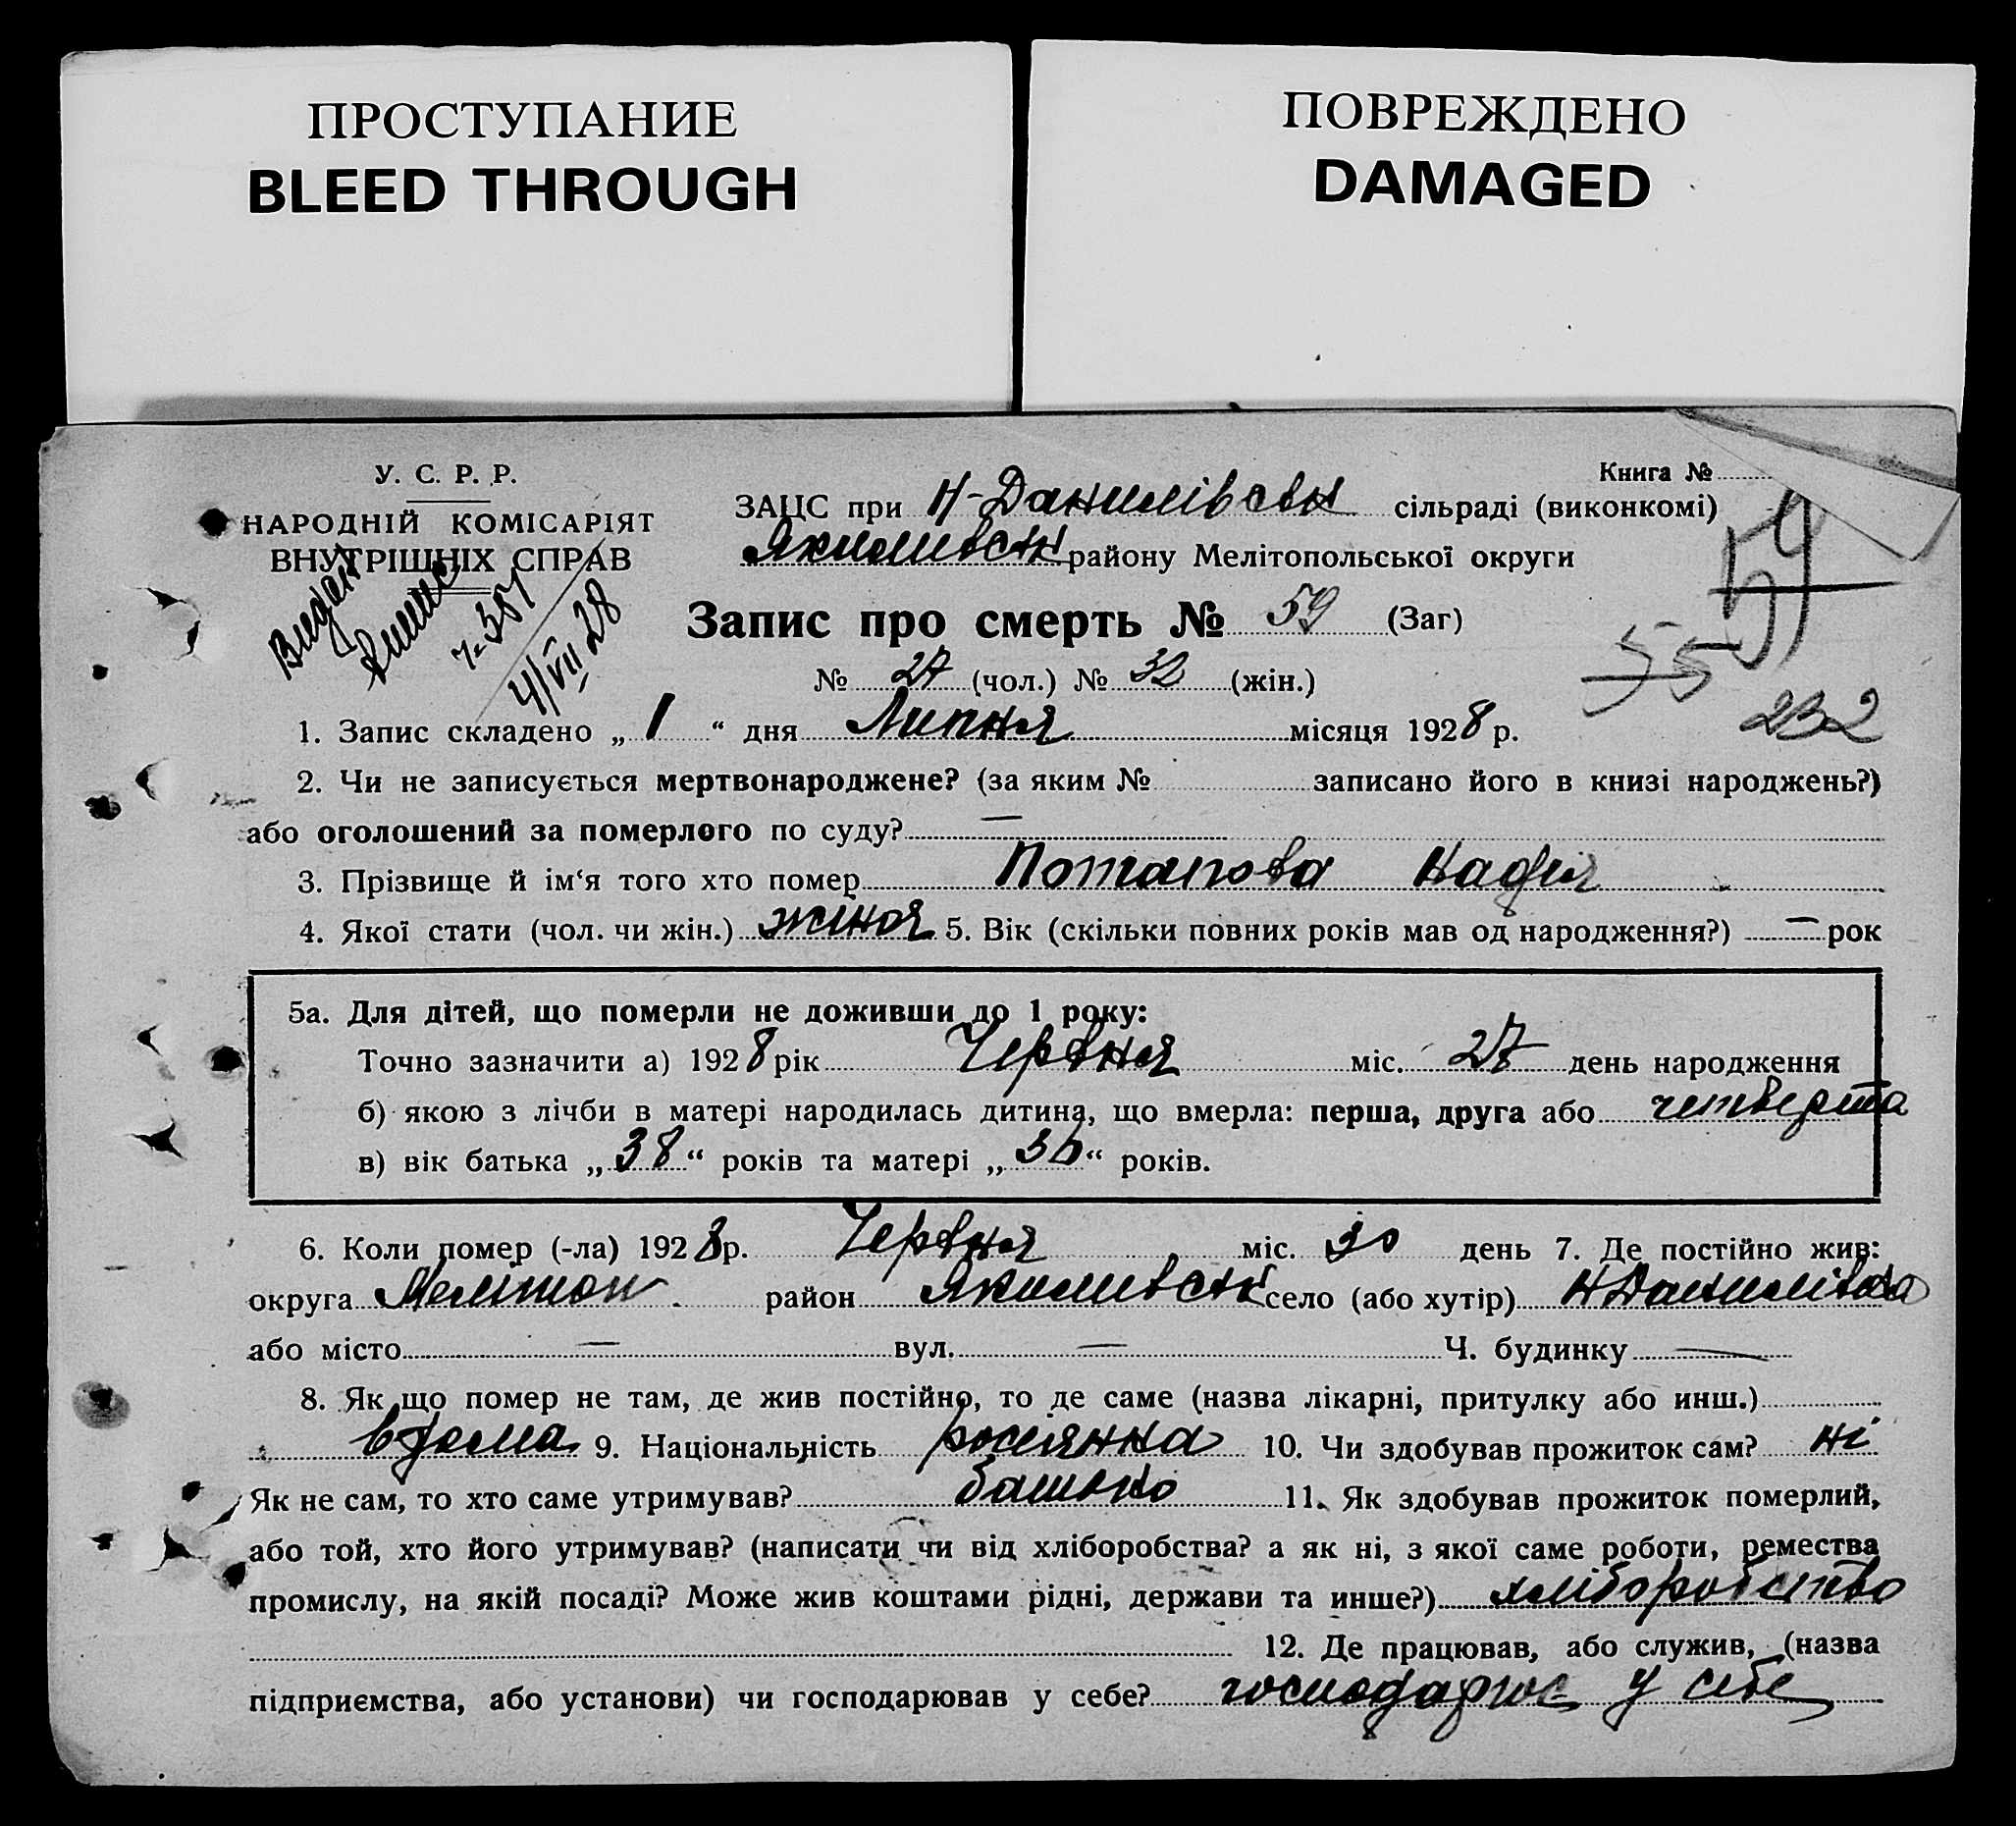 ПРОСТУПАНИЕ
BLEED THROUGH
ПОВРЕЖДЕНО
DAMAGED
У. С. Р. Р.
НАРОДНІЙ КОМІСАРІЯТ
ВНУТРІШНІХ СПРАВ
4/VII 28
Книга №
ЗАЦС при Н-Данилівськ сільраді (виконкомі)
Якимівськ району Мелітопольської округи
Запис про смерть № 59 (Заг)
№ 27 (чол.) № 32 (жін.)
59
55
232
1. Запис складено „ 1 “ дня Липня місяця 1928 р.
2. Чи не записується мертвонароджене? (за яким № записано його в книзі народжень?)
або оголошений за померлого по суду? —
3. Прізвище й ім‘я того хто помер Потапова Надія
4. Якої стати (чол. чи жін.) жіноя 5. Вік (скільки повних років мав од народження?) — рок
5а. Для дітей, що померли не доживши до 1 року:
Точно зазначити а) 1928 рік Червня міс. 27 день народження
б) якою з лічби в матері народилась дитина, що вмерла: перша, друга або четверта
в) вік батька „ 38 “ років та матері „ 36 “ років.
6. Коли помер (-ла) 1928 р. Червня міс. 30 день 7. Де постійно жив:
округа Мелітоп. район Якимівськ село (або хутір) Н Данилівка
або місто — вул. — Ч. будинку —
8. Як що помер не там, де жив постійно, то де саме (назва лікарні, притулку або инш.)
вдома 9. Національність росіянка 10. Чи здобував прожиток сам? ні
Як не сам, то хто саме утримував? батько 11. Як здобував прожиток померлий,
або той, хто його утримував? (написати чи від хліборобства? а як ні, з якої саме роботи, ремества
промислу, на якій посаді? Може жив коштами рідні, держави та инше?) хліборобство
12. Де працював, або служив, (назва
підприємства, або установи) чи господарював у себе? господарює у себе